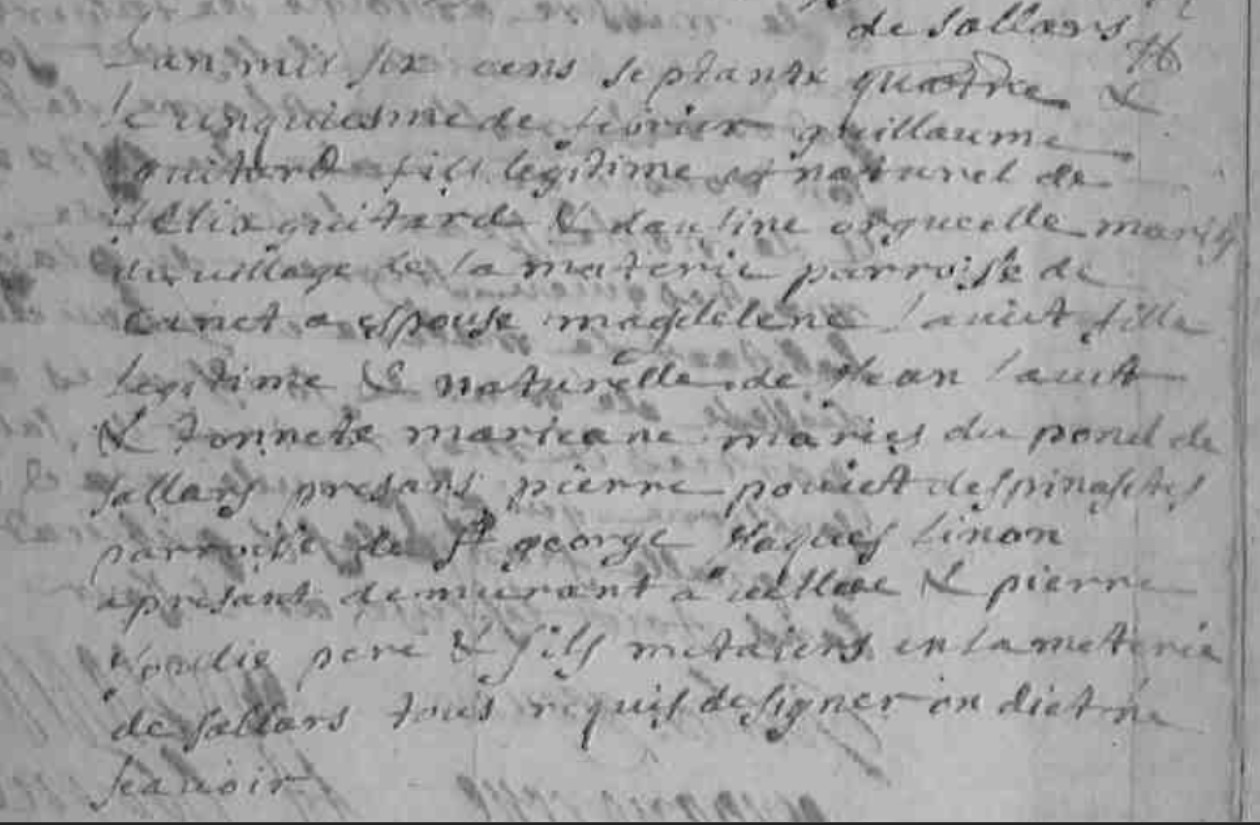 de sallars
L an mil six cens septante quatre &
le cinquiesme de febvrier guillaume
guitard fils legitime et naturel de
felix guitard & dauline orguelle maries
du village de la materie parroisse de
canet a espouse magdelene lauiet fille
legitime & naturelle de Jean lauiet
& tonnete maries du pond de
sallars presans pierre pouiet despinassetes
parroisse de st george Jaques linon
apresant demurant a & pierre
pere & fils metaiers en la meterie
de sallars tous requis de signer on dict ne
scauoir